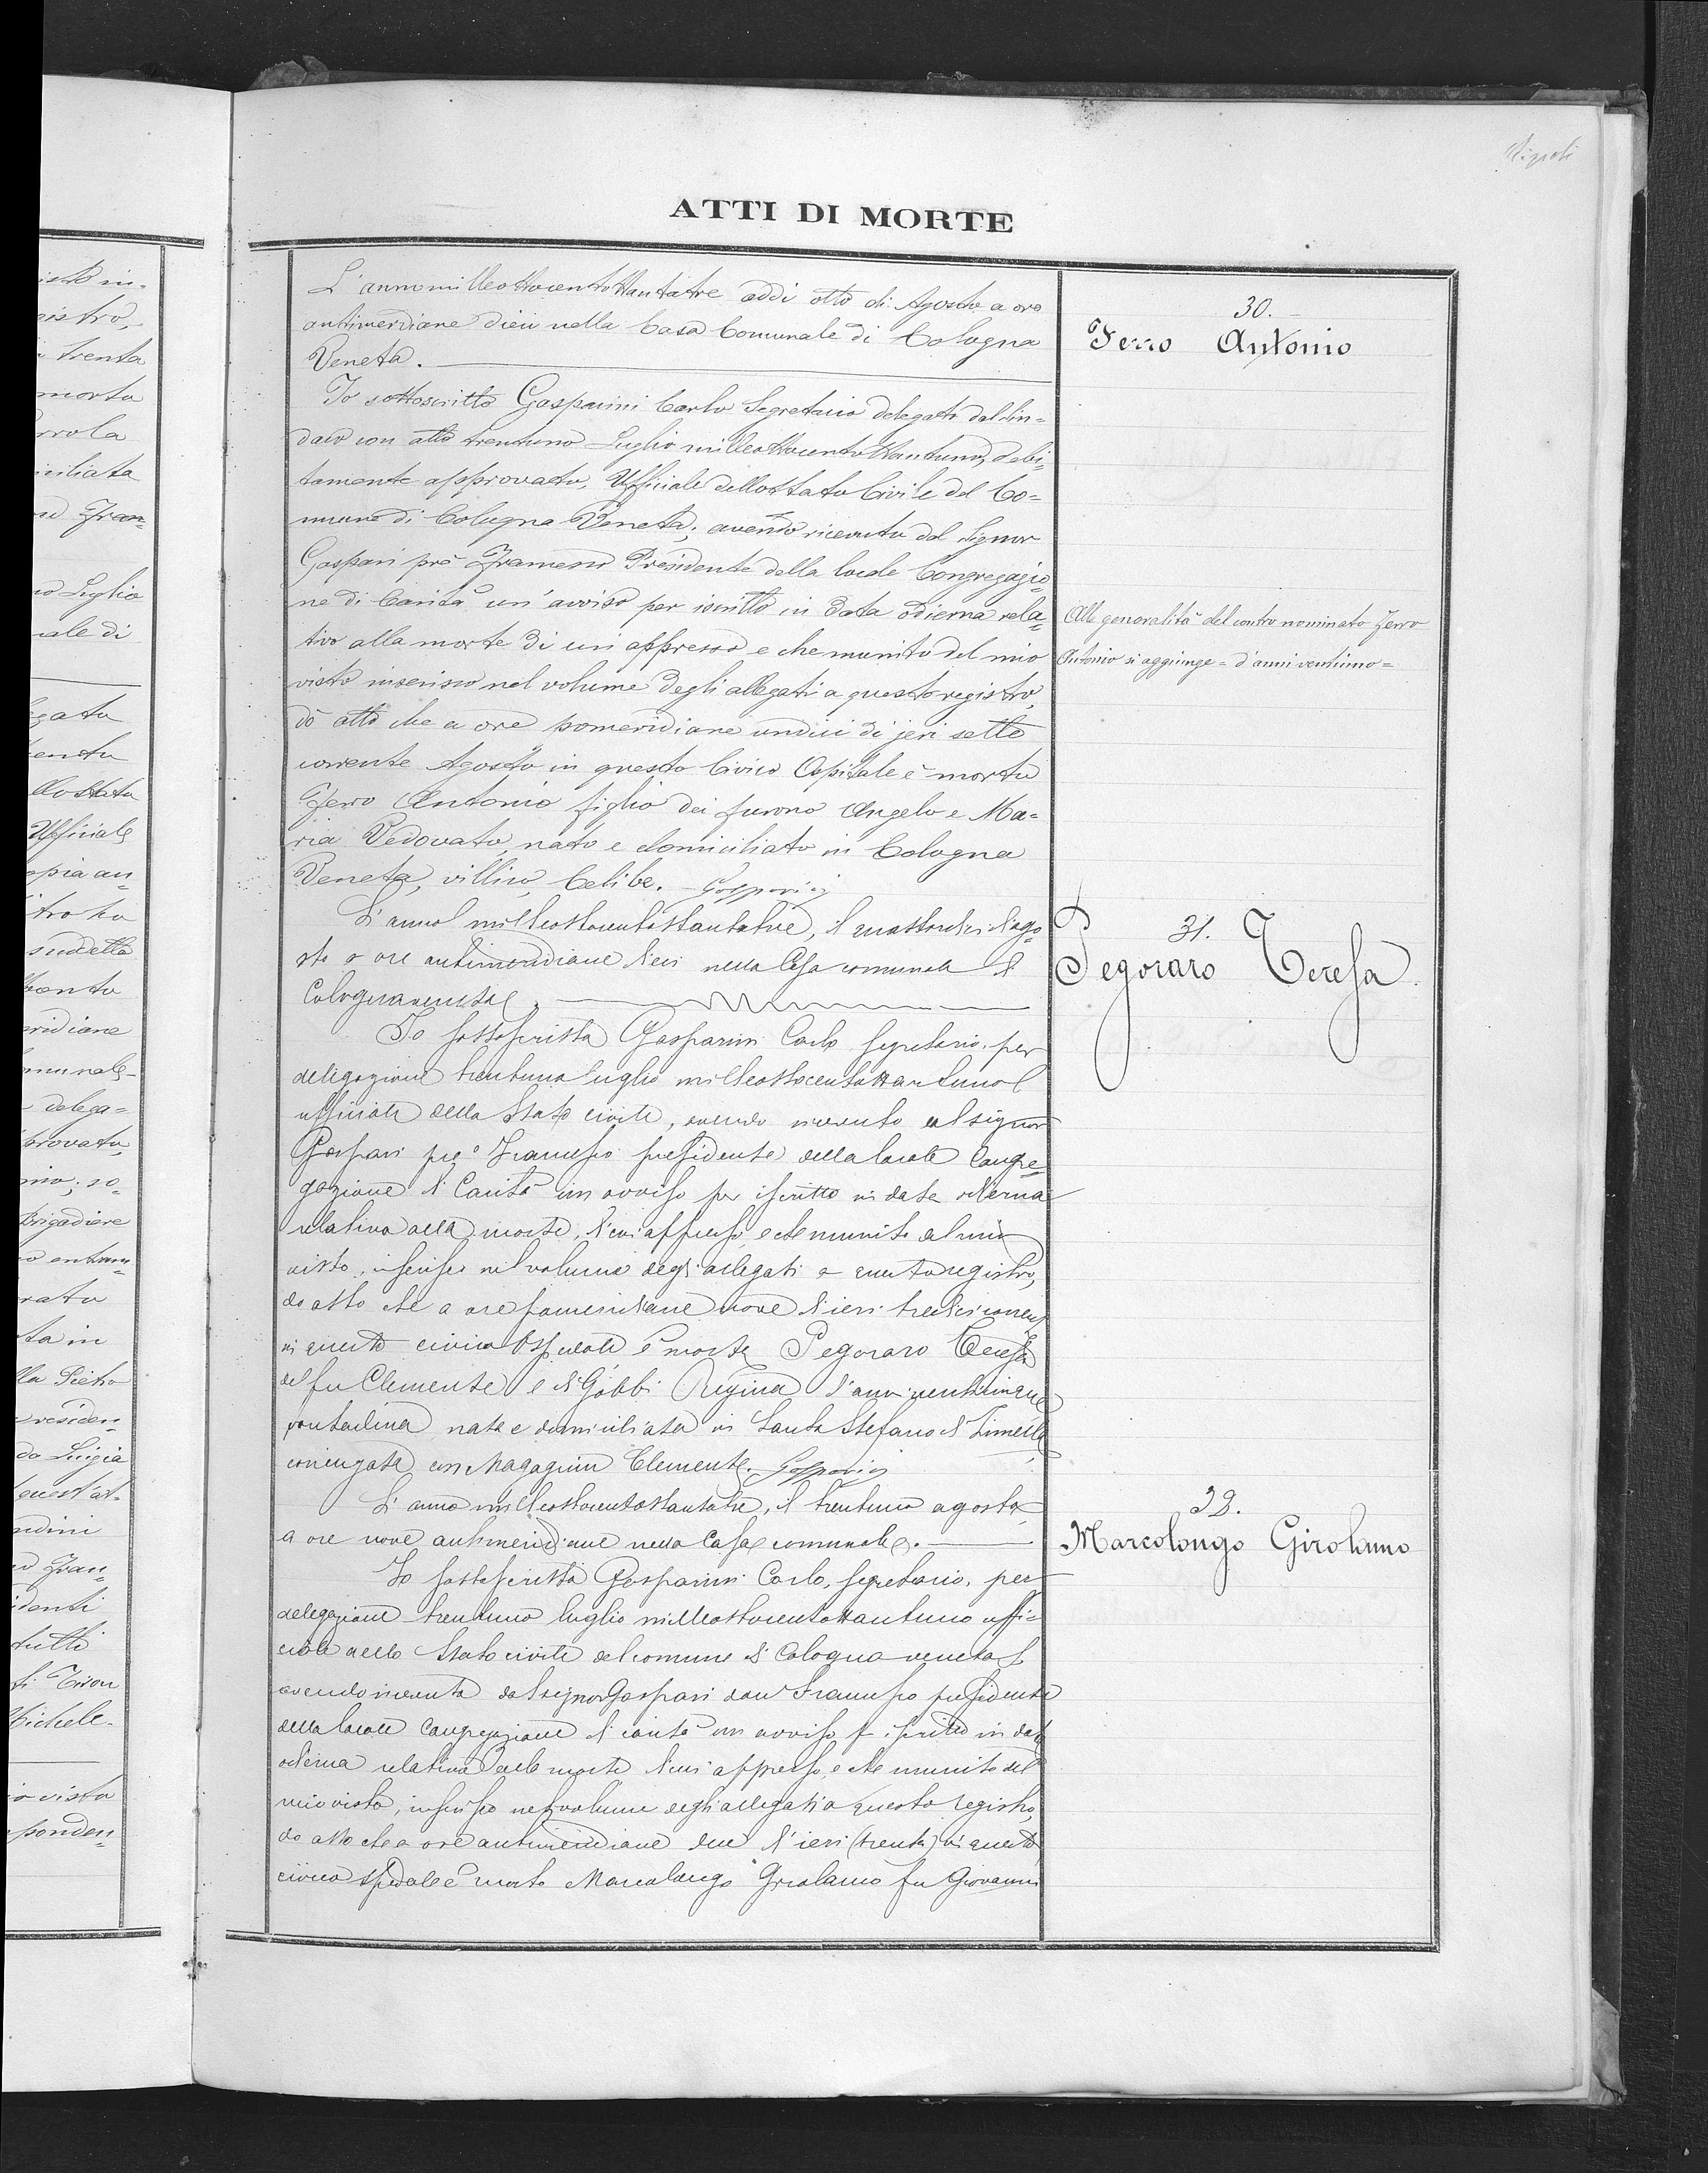 Ripoli
ATTI DI MORTE
L'anno milleottocentottantatre addì otto di Agosto a ore
antimeridiane dieci nella Casa Comunale di Cologna
Veneta.
Io sottoscritto Gasparini Carlo Segretario delegato dal Sin=
daco con atto trentuno Luglio milleottocentottantuno, debi=
tamente approvato, Ufficiale dello Stato Civile del Co=
mune di Cologna Veneta; avendo ricevuto dal Signor
Gaspari pre Francesco Presidente della locale Congregazio=
ne di Carità un'avviso per iscritto in data odierna rela=
tivo alla morte di cui appresso e che munito del mio
visto inserisco nel volume degli allegati a questo registro,
dò atto che a ore pomeridiane undici di jeri sette
corrente Agosto in questo Civico Ospitale è morto
Ferro Antonio figlio dei furono Angelo e Ma=
ria Vedovato, nato e domiciliato in Cologna
Veneta, villico, Celibe. Gasparini
30.
Ferro Antonio
Alle generalità del contro nominato Ferro
Antonio si aggiunge = d'anni ventuno =
L'anno milleottocentottantatre, il quattordici d'ago=
sto a ore antimeridiane dieci nella Casa comunale di
Colognaveneta.
Io sottoscritto Gasparini Carlo segretario, per
delegazione trentuno luglio milleottocentottantuno
ufficiale dello Stato civile, avendo ricevuto dal signor
Gaspari pre Francesco presidente della locale Congre=
gazione di Carità un avviso per iscritto in data odierna
relativo alla morte, di cui appresso, e che munito del mio
visto, inserisco nel volume degli allegati a questo registro,
do atto che a ore pomeridiane nove di ieri tredici corrente
in questo civico Ospedale è morta Pegoraro Teresa
del fu Clemente e di Gobbi Regina d'anni venticinque
contadina nata e domiciliata in Santo Stefano di Zimella
coniugata con Magagnin Clemente. Gasparini
31.
Pegoraro Teresa
L'anno milleottocentottantatre, il trentuno agosto
a ore nove antimeridiane nella Casa comunale.
Io sottoscritto Gasparini Carlo, segretario, per
delegazione trentuno luglio milleottocentottantuno uffi=
ciale dello Stato civile del comune di Cologna veneta
avendo ricevuto dal signor Gaspari don Francesco presidente
della locale Congregazione di carità un avviso p iscritto in data
odierna relativo alla morte di cui appresso, e che munito del
mio visto, inserisco nel volume degli allegati a questo registro,
do atto che a ore antimeridiane due d'ieri (trenta) in questo
civico spedale è morto Marcolongo Girolamo fu Giovanni
32.
Marcolongo Girolamo